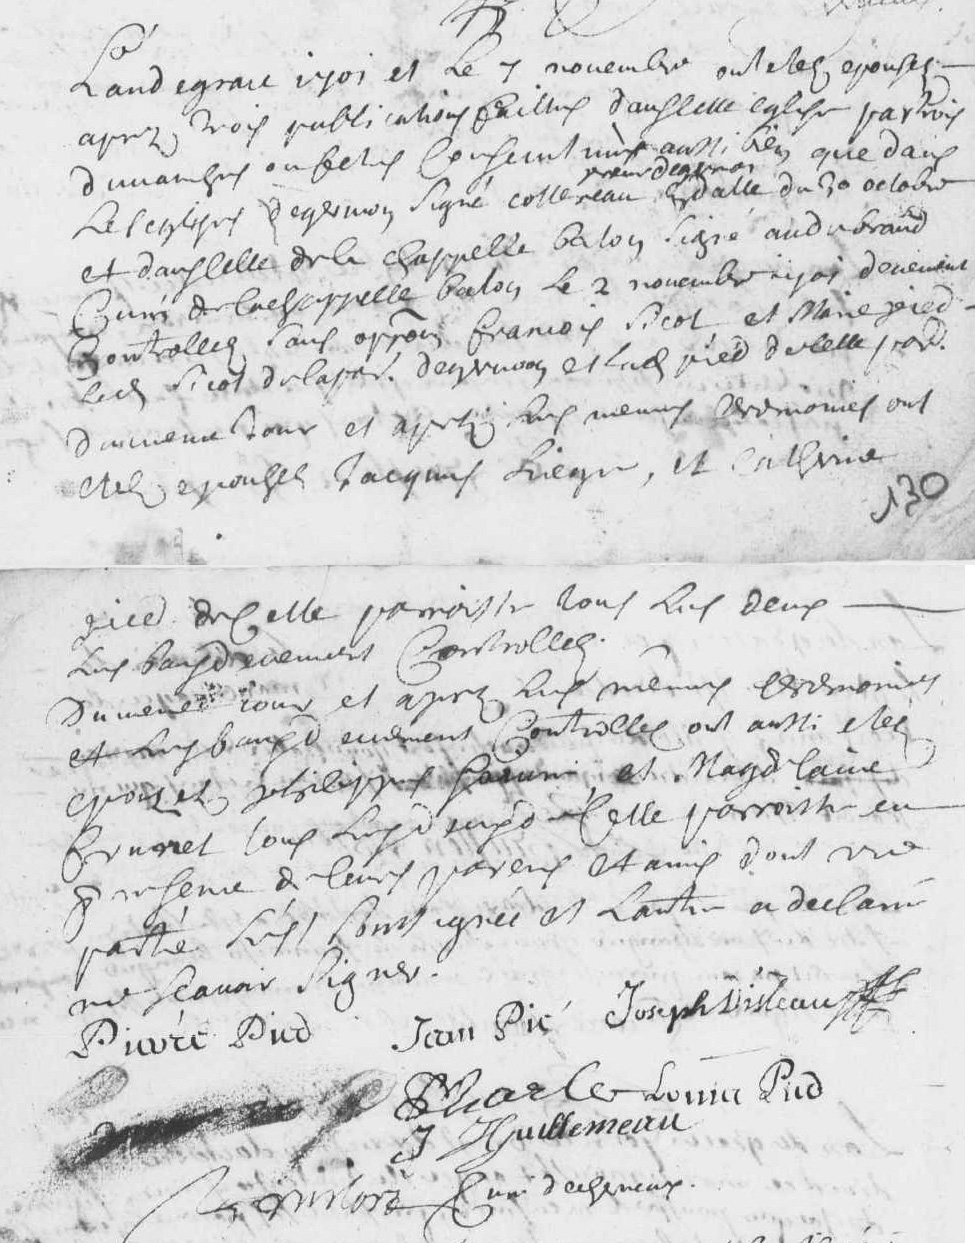 L'an de grace 1701 et Le 7 novembre ont etez epousez
aprez trois publications faittes dans cette eglise par trois
dimanches ou festes Consecutives aussi bien que dans
prieur degernon
Les eglises degernon Signé cottereau en datte du 30 octobre
et dans celle de la chappelle baton Signé audebrand
Curé de lachappelle baton Le 2 novembre 1701 deuement
Controllez sans oppon francois Sicot et Marie pied
Led Sicot de la par. degernon et lad pied de cette par.
Du meme Jour et aprez les memes ceremonies ont
etez epousez Jacques Liegre, et Catherine
130
pied de Cette parroisse tous les deux
les bans deuement Controllez.
Du meme Jour et aprez les mêmes ceremonies
et les bans deuement Controllez ont aussi etez
epousez philippes et Magdelaine
brunet tous les deux de Cette parroisse en
presence de leurs parens et amis dont une
partie s'est soussignée et l'autre a declaré
ne scavoir Signer.
Pierre Pied Jean Pié Joseph
Charle Louis Pied
J Guillemeau
Curé